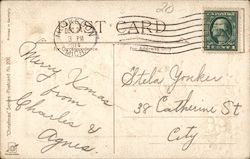 20
POST CARD
3 PM
Merry Xmas
from
Charles &
Agnes
Stela Yonker
38 Catherine St
City
"Christmas" Series Postcard No.
Printed in Germany